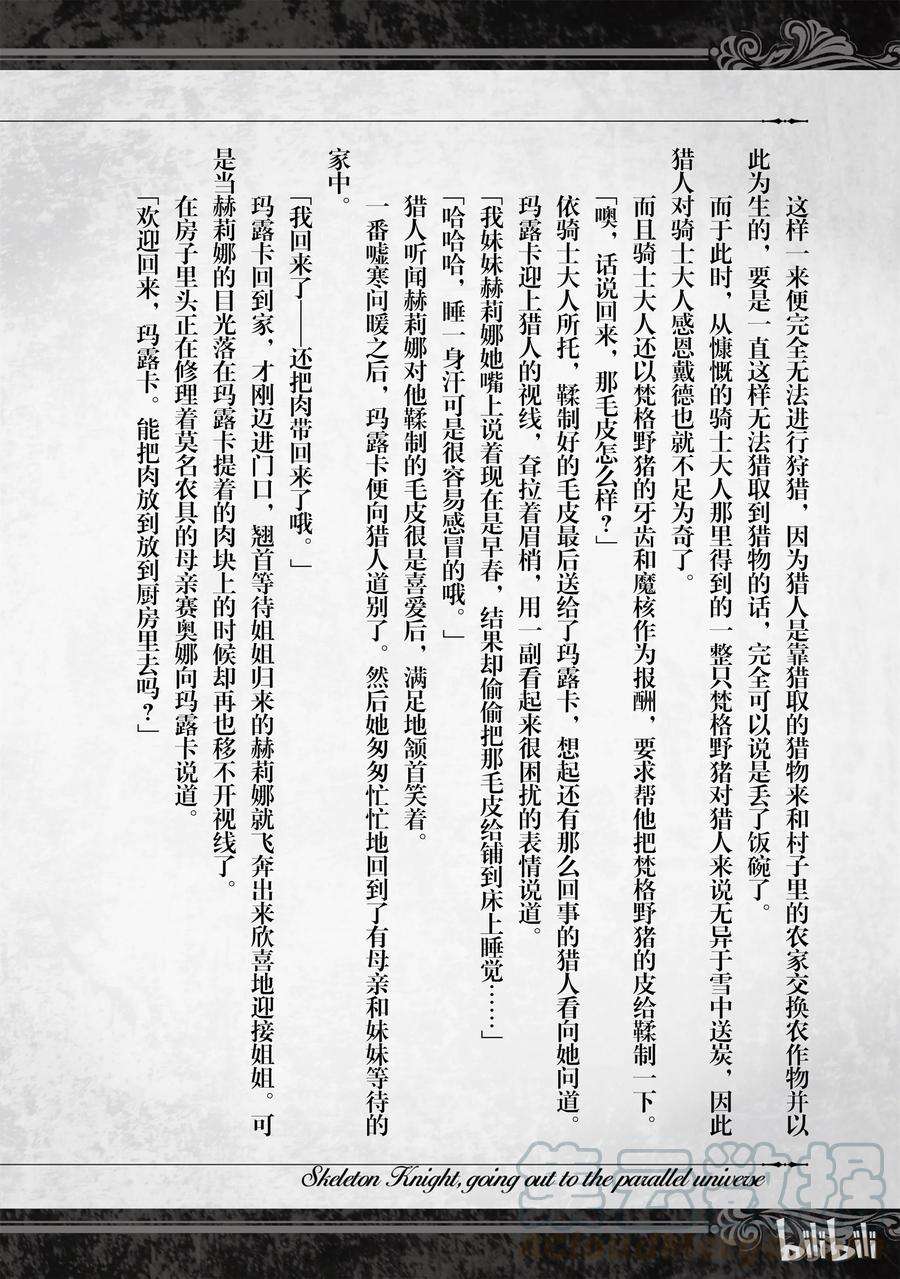 这样一来便完全无法进行狩猎，因为猎人是靠猎取的猎物来和村子里的农家交换农作物并以
此为生的，要是一直这样无法猎取到猎物的话，完全可以说是丢了饭碗了。
而于此时，从慷慨的骑士大人那里得到的一整只梵格野猪对猎人来说无异于雪中送炭，因此
猎人对骑士大人感恩戴德也就不足为奇了。
而且骑士大人还以梵格野猪的牙齿和魔核作为报酬，要求帮他把梵格野猪的皮给鞣制一下。
「噢，话说回来，那毛皮怎么样？」
依骑士大人所托，鞣制好的毛皮最后送给了玛露卡，想起还有那么回事的猎人看向她问道。
玛露卡迎上猎人的视线，耷拉着眉梢，用一副看起来很困扰的表情说道。
「我妹妹赫莉娜她嘴上说着现在是早春，结果却偷偷把那毛皮给铺到床上睡觉……」
「哈哈哈，睡一身汗可是很容易感冒的哦。」
猎人听闻赫莉娜对他鞣制的毛皮很是喜爱后，满足地颔首笑着。
一番嘘寒问暖之后，玛露卡便向猎人道别了。然后她匆匆忙忙地回到了有母亲和妹妹等待的
家中。
「我回来了——还把肉带回来了哦。」
玛露卡回到家，才刚迈进门口，翘首等待姐姐归来的赫莉娜就飞奔出来欣喜地迎接姐姐。可
是当赫莉娜的目光落在玛露卡提着的肉块上的时候却再也移不开视线了。
在房子里头正在修理着莫名农具的母亲赛奥娜向玛露卡说道。
「欢迎回来，玛露卡。能把肉放到放到厨房里去吗？」
Skeleton Knight, going out to the parallel universe
bilibili